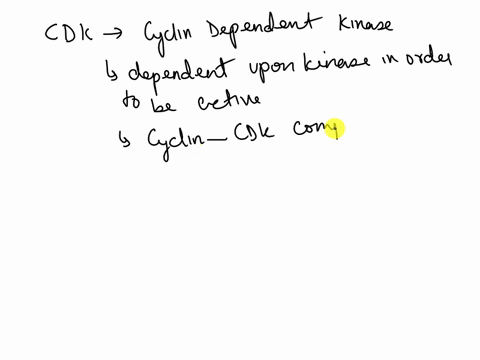 CDK → Cyclin Dependent Kinase
↳ dependent upon kinase in order
to be active
↳ Cyclin — CDK comp